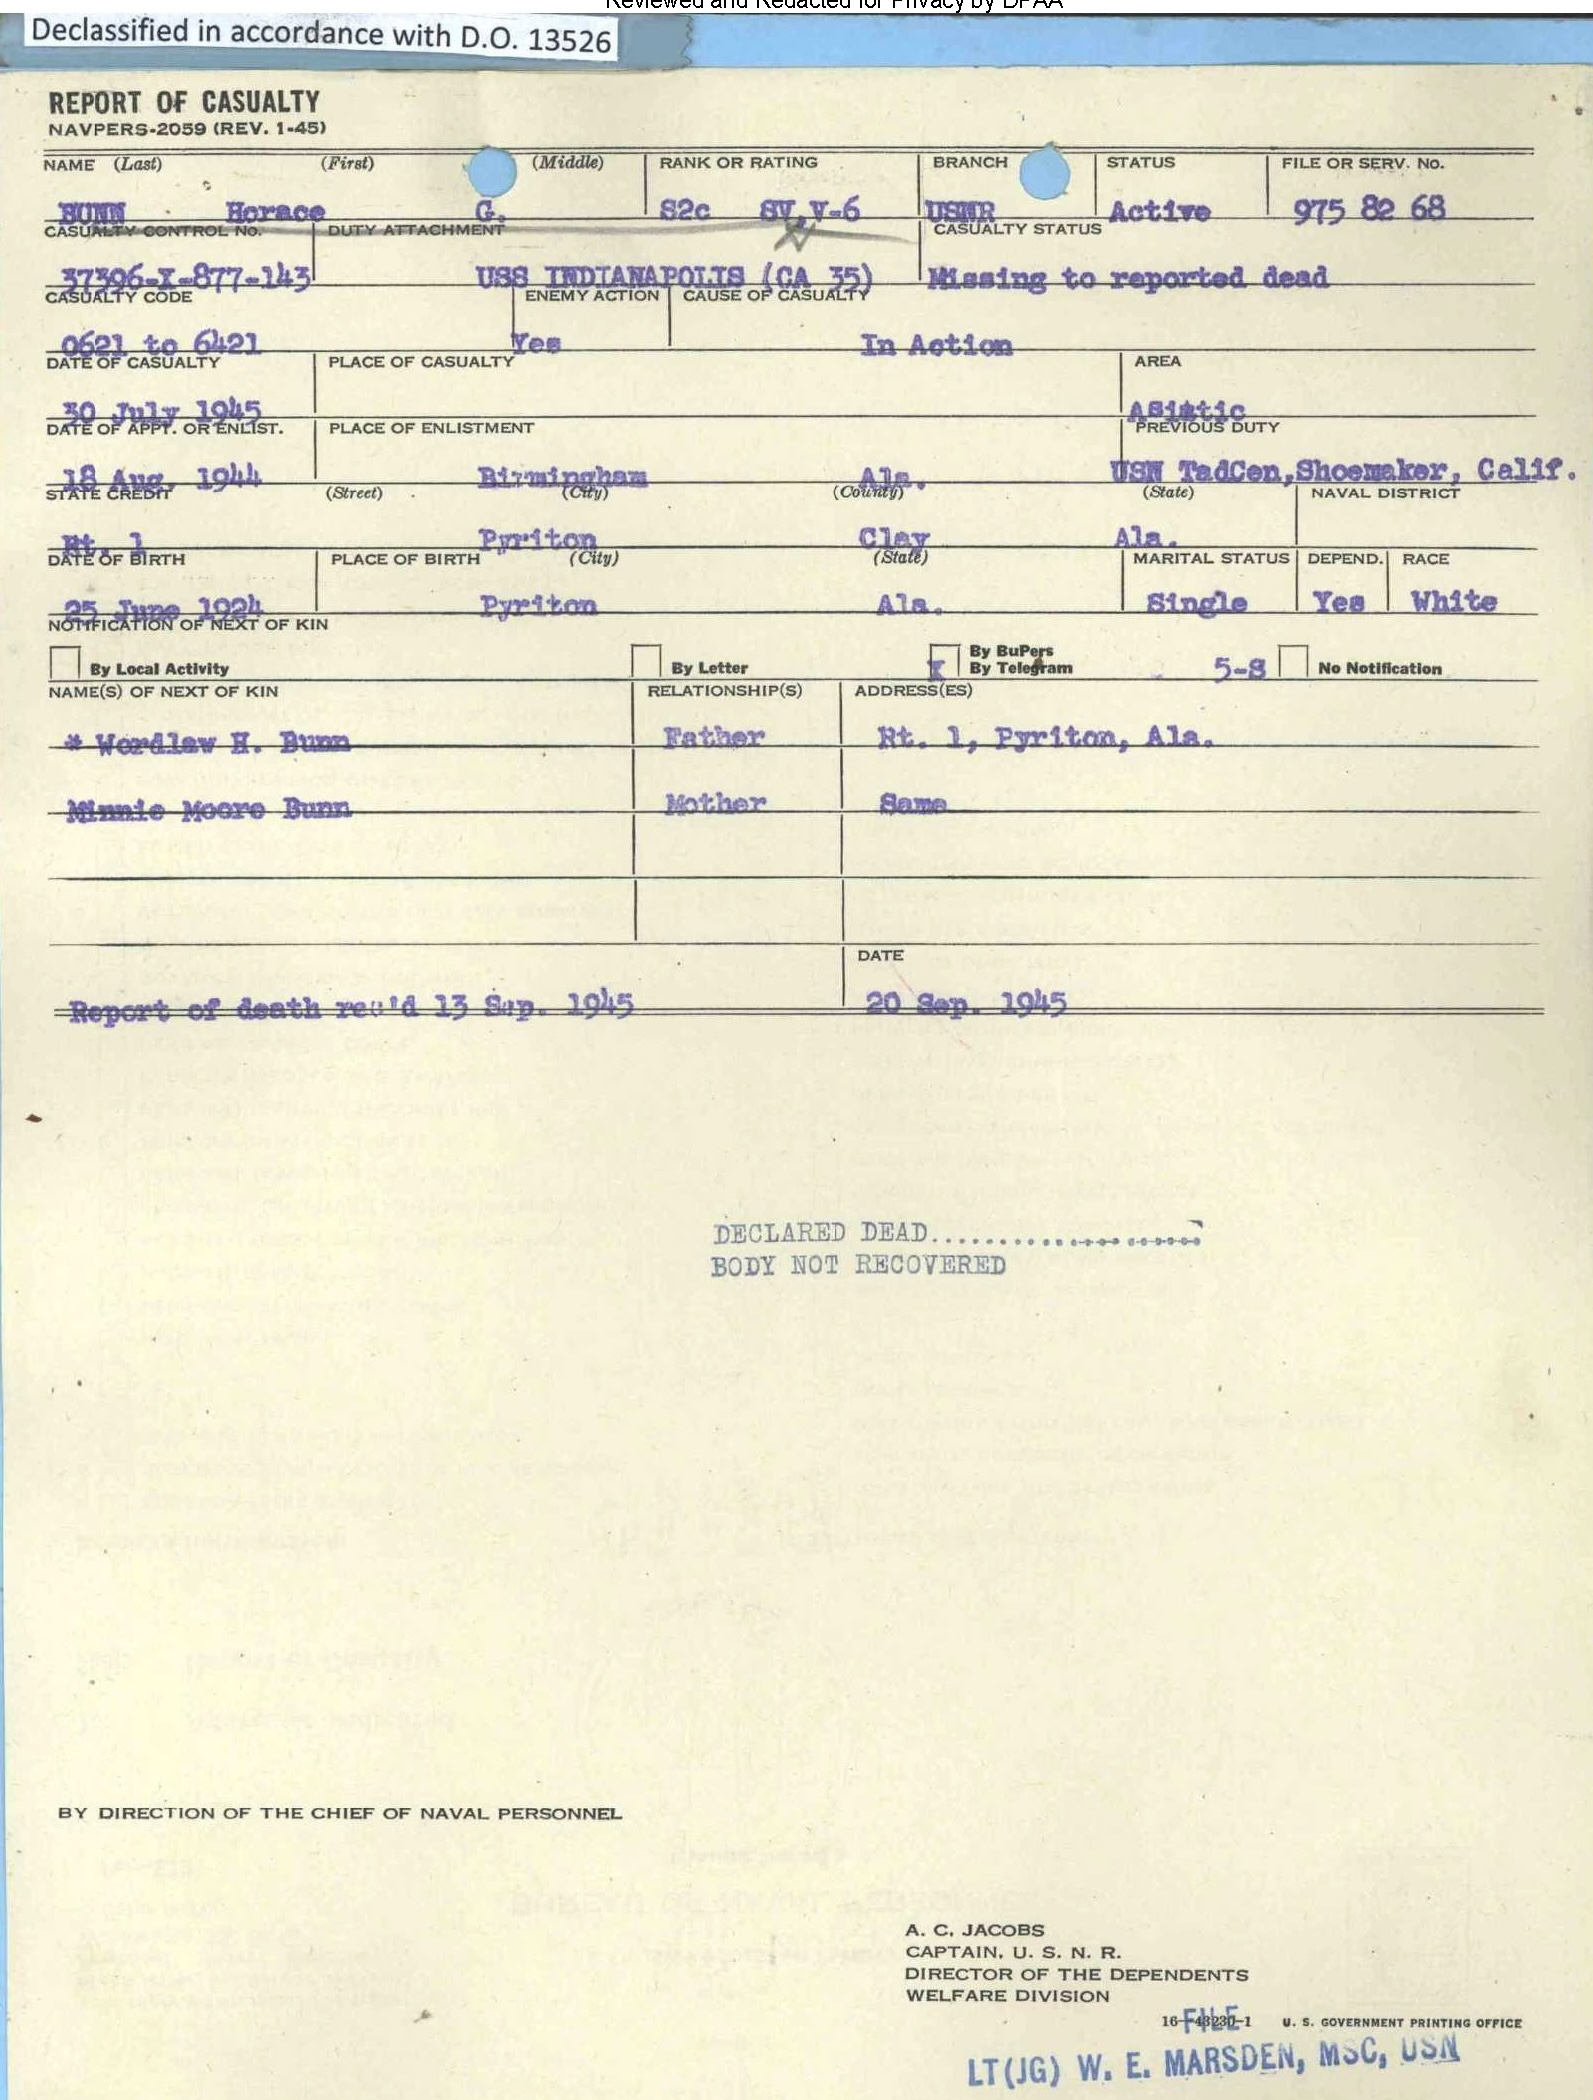 Reviewed and Redacted for Privacy by DPAA
Declassified in accordance with D.O. 13526
REPORT OF CASUALTY
NAVPERS-2059 (REV. 1-45)
NAME (Last) (First) (Middle) RANK OR RATING BRANCH STATUS FILE OR SERV. No.
BUNN Horace G. S2c SV,V-6 USNR Active 975 82 68
CASUALTY CONTROL No. DUTY ATTACHMENT CASUALTY STATUS
37396-X-877-143 USS INDIANAPOLIS (CA 35) Missing to reported dead
CASUALTY CODE ENEMY ACTION CAUSE OF CASUALTY
0621 to 6421 Yes In Action
DATE OF CASUALTY PLACE OF CASUALTY AREA
30 July 1945 Asiatic
DATE OF APPT. OR ENLIST. PLACE OF ENLISTMENT PREVIOUS DUTY
18 Aug. 1944 Birmingham Ala. USN TadCen,Shoemaker, Calif.
STATE CREDIT (Street) (City) (County) (State) NAVAL DISTRICT
Rt. 1 Pyriton Clay Ala.
DATE OF BIRTH PLACE OF BIRTH (City) (State) MARITAL STATUS DEPEND. RACE
25 June 1924 Pyriton Ala. Single Yes White
NOTIFICATION OF NEXT OF KIN
By Local Activity By Letter X By BuPers By Telegram 5-8 No Notification
NAME(S) OF NEXT OF KIN RELATIONSHIP(S) ADDRESS(ES)
* Wordlaw H. Bunn Father Rt. 1, Pyriton, Ala.
Minnie Moore Bunn Mother Same
DATE
Report of death rec'd 13 Sep. 1945 20 Sep. 1945
DECLARED DEAD......................
BODY NOT RECOVERED
BY DIRECTION OF THE CHIEF OF NAVAL PERSONNEL
A. C. JACOBS
CAPTAIN, U. S. N. R.
DIRECTOR OF THE DEPENDENTS
WELFARE DIVISION
16-43230-1 U. S. GOVERNMENT PRINTING OFFICE
FILE
LT(JG) W. E. MARSDEN, MSC, USN